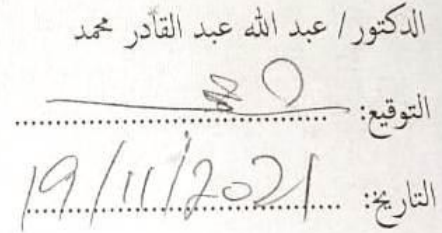 الدكتور / عبد الله عبد القادر محمد
التوقيع: ........................................
التاريخ: 19/11/2021